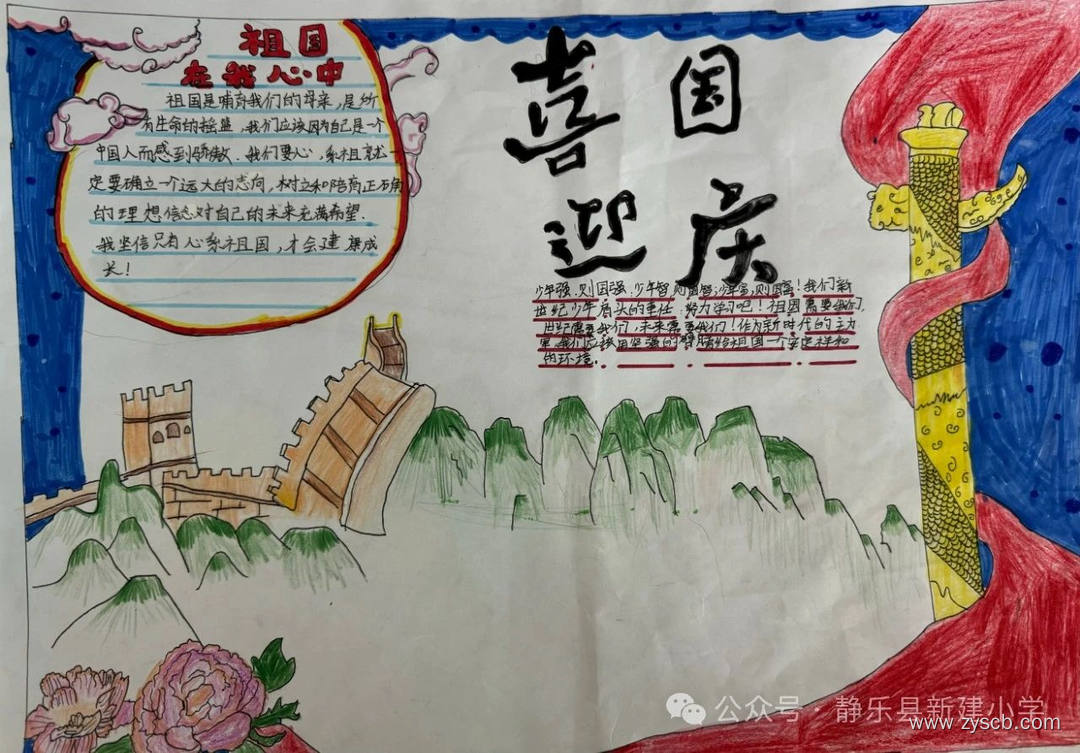 祖国
在我心中
祖国是哺育我们的母亲,是所
有生命的摇篮,我们应该因为自己是一个
中国人而感到骄傲.我们要心系祖就
定要确立一个远大的志向,树立和陪育正确
的理想信念对自己的未来充满希望.
我坐信只有心系祖国,才会建康成
长!
喜国
迎庆
少年强,则国强,少年智则国智,少年富,则国富!我们新
世纪少年肩头的重任,努力学习吧!祖国需要我们,
世纪需要我们,未来需要我们!作为新时代的主力
军,我们应该用坚强的臂膀给祖国一个安定祥和
的环境.
公众号·静乐县新建小学
www.zyscb.com